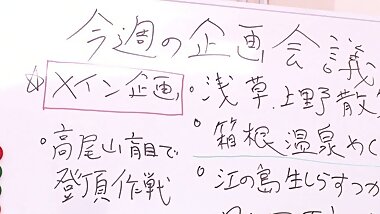 今週の企画会議
☆メイン企画
・浅草、上野散
。箱根温泉めぐ
。高尾山盲目で
登頂作戦
。江の島生しらすつか